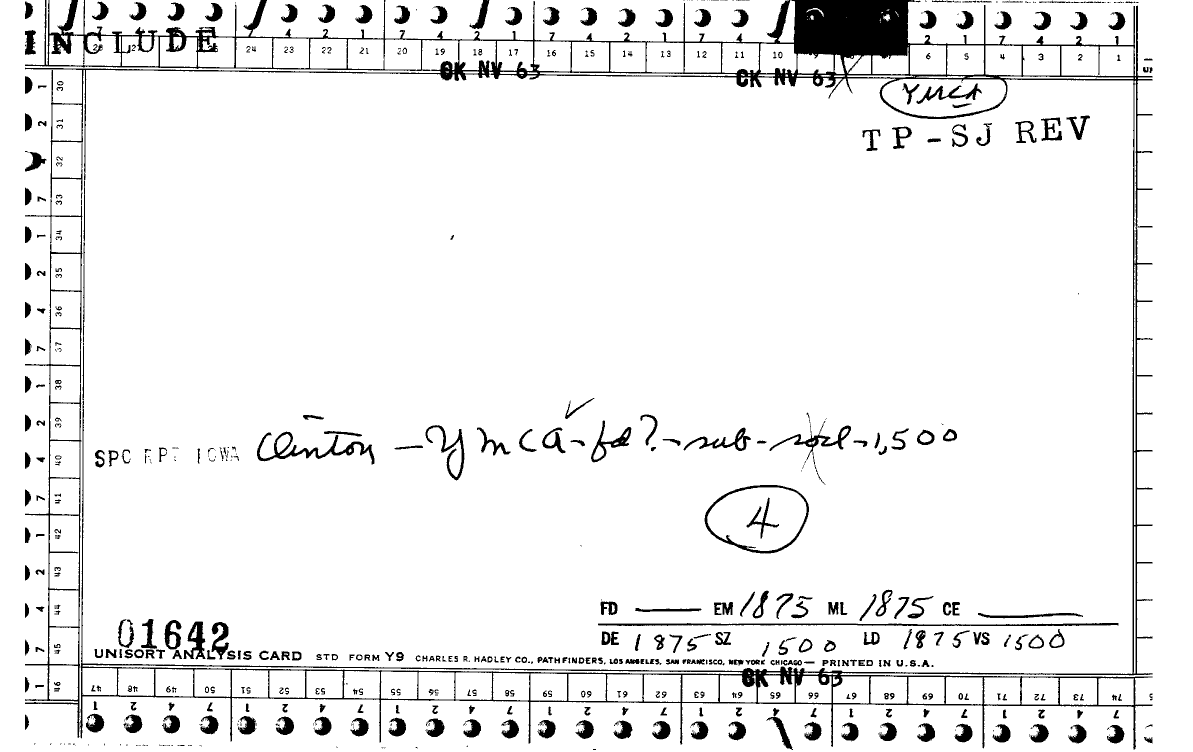 INCLUDE
24 23 22 21 20 19 18 17 16 15 14 13 12 11 10 6 5 4 3 2 1
CK NV 63 CK NV 63
YMCA
TP-SJ REV
SPC RPT IOWA Clinton - YMCA - fd? - sub - - 1,500
4
FD EM 1875 ML 1875 CE
DE 1875 SZ 1500 LD 1875 VS 1500
01642
UNISORT ANALYSIS CARD STD FORM Y9 CHARLES R. HADLEY CO., PATHFINDERS, LOS ANGELES, SAN FRANCISCO, NEW YORK CHICAGO — PRINTED IN U.S.A.
CK NV 63
47 48 49 50 51 52 53 54 55 56 57 58 59 60 61 62 63 64 65 66 67 68 69 70 71 72 73 74
1 2 4 7 1 2 4 7 1 2 4 7 1 2 4 7 1 2 4 7 1 2 4 7 1 2 4 7